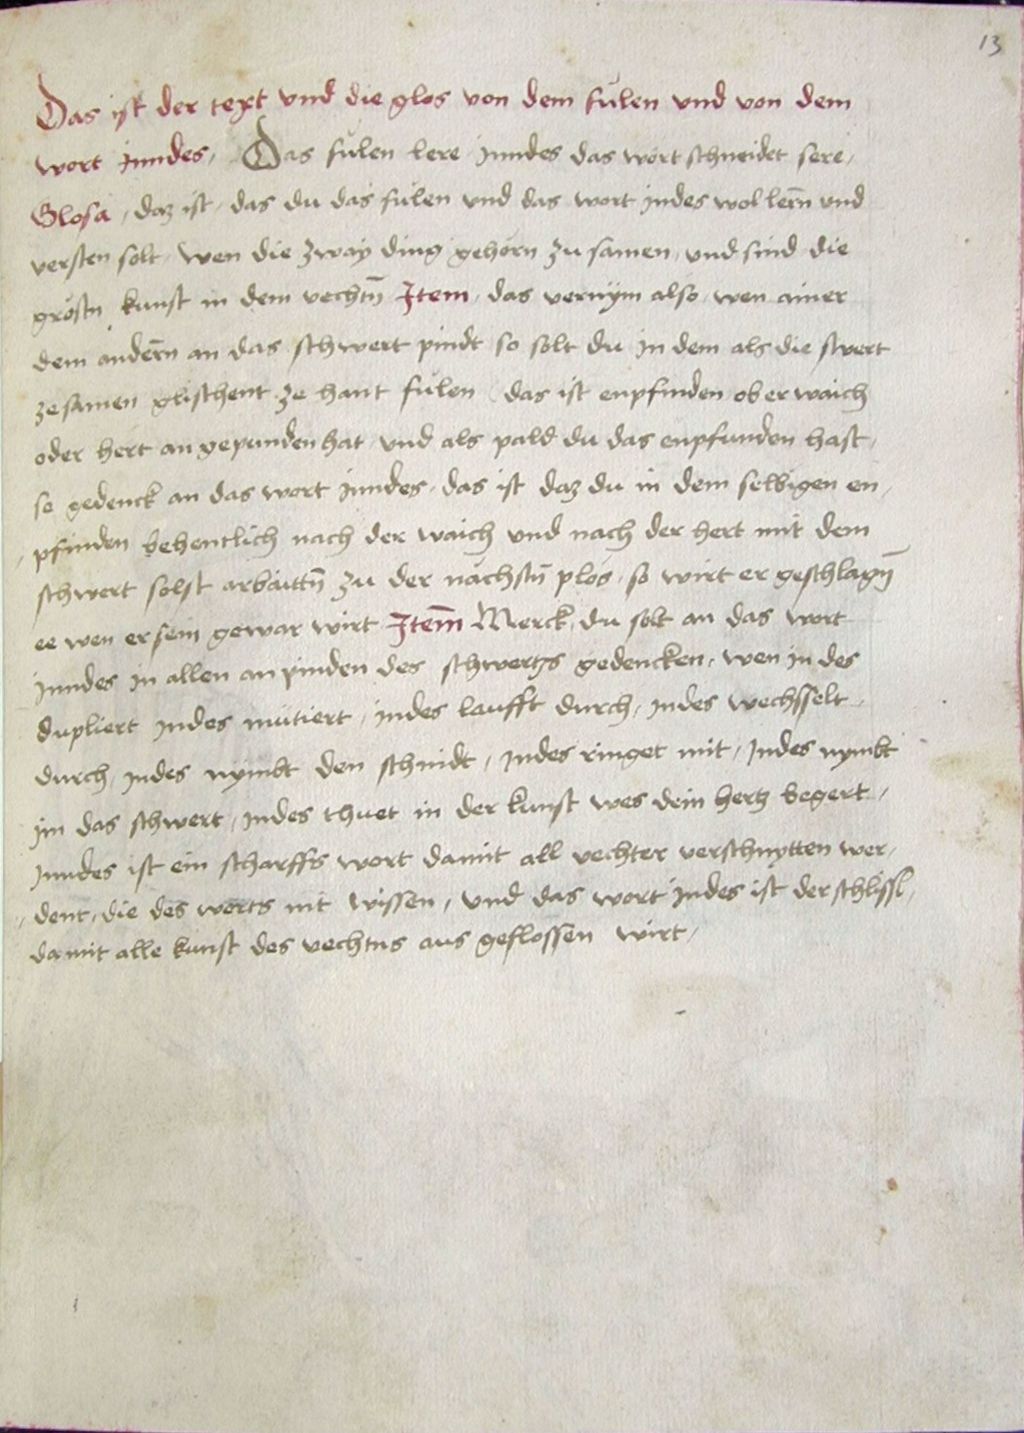 13
Das ist der text vnd die glos von dem fülen vnd von dem
wort Inndes, Das fülen lere Inndes das wort schneidet sere,
Glosa, daz ist, das du das fülen vnd das wort Indes wol lern̄ vnd
versten solt, wen die zway ding gehörn zu samen, vnd sind die
gröstn kunst in dem vechtn̄ Item, das vernÿm also wen ainer
dem andern̄ an das schwert pindt so solt du in dem als die swert
ze samen glischent ze hant fülen das ist enpfinden ob er waich
oder hert an gepunden hat vnd als pald du das enpfunden hast,
so gedenck an das wort Inndes, das ist daz du in dem selbigen en,
pfinden behentlich nach der waich vnd nach der hert mit dem
schwert solst arbaittn̄ zu der nächstn̄ plös, so wirt er geschlagn̄
ee wen er sein gewar wirt Item̄ Merck, du solt an das wort
Inndes in allen an pinden des schwertzs gedencken, wen in des
dupliert Indes mutiert, indes laufft durch, Indes wechsselt
durch, Indes nÿmbt den schnidt, Indes ringet mit, Indes nymbt
im das schwert, Indes thuet in der kunst wes dein hertz begert,
Inndes ist ein scharffs wort damit all vechter verschnytten wer,
dent, die des worts nit wissen, vnd das wort Indes ist der schlissl,
damit alle kunst des vechtns aus geslossen wirt,